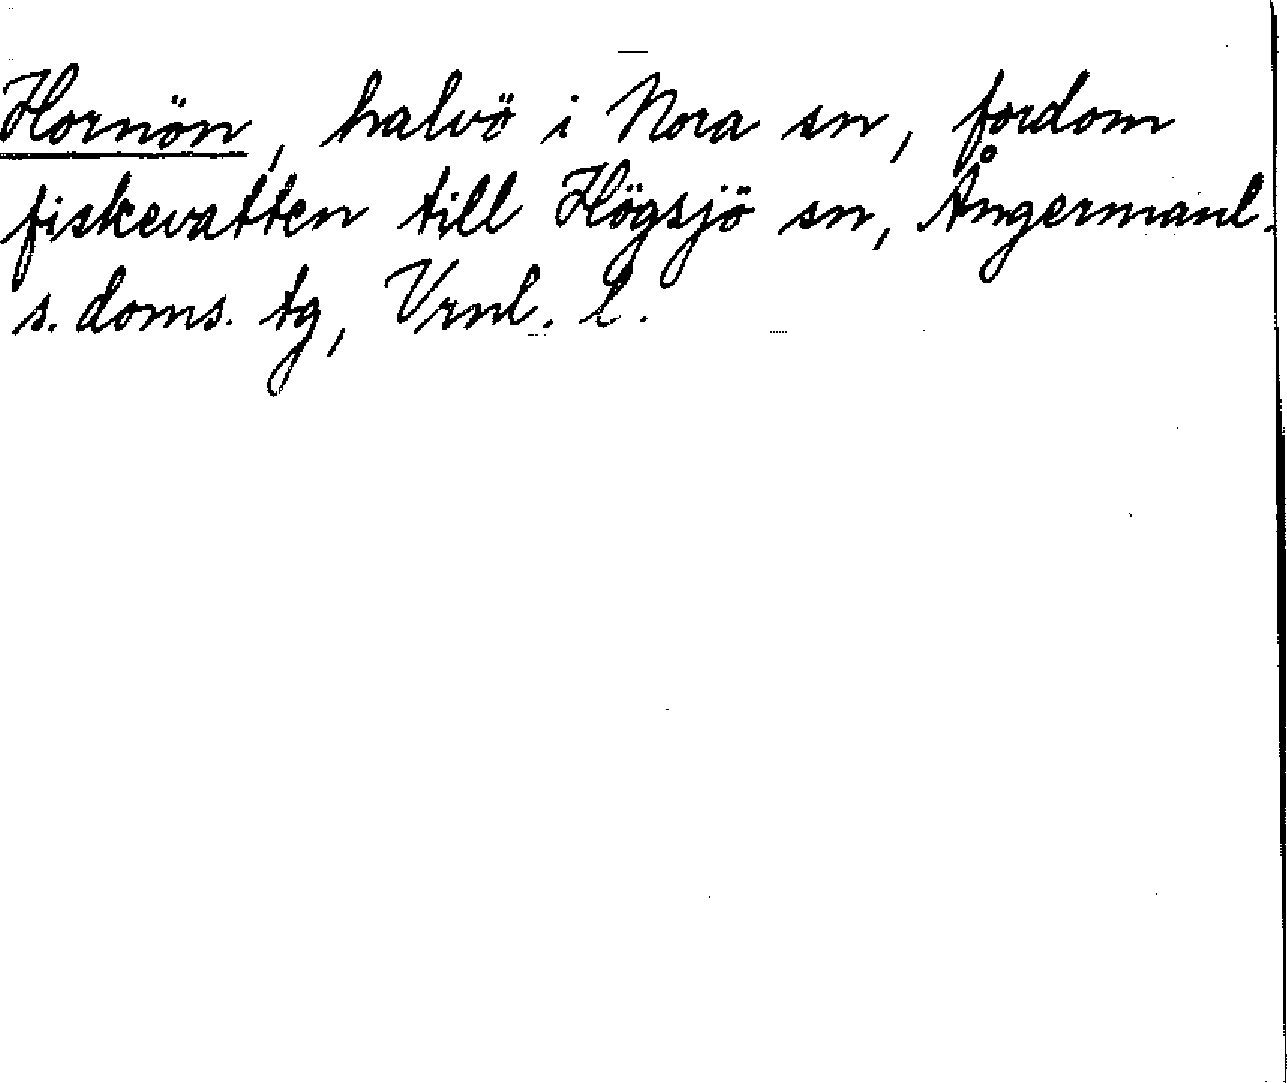 Hornön, halvö i Nora sn, fordom
fiskevatten till Högsjö sn, Ångermanl.
s. doms. tg, Vrnl. l.